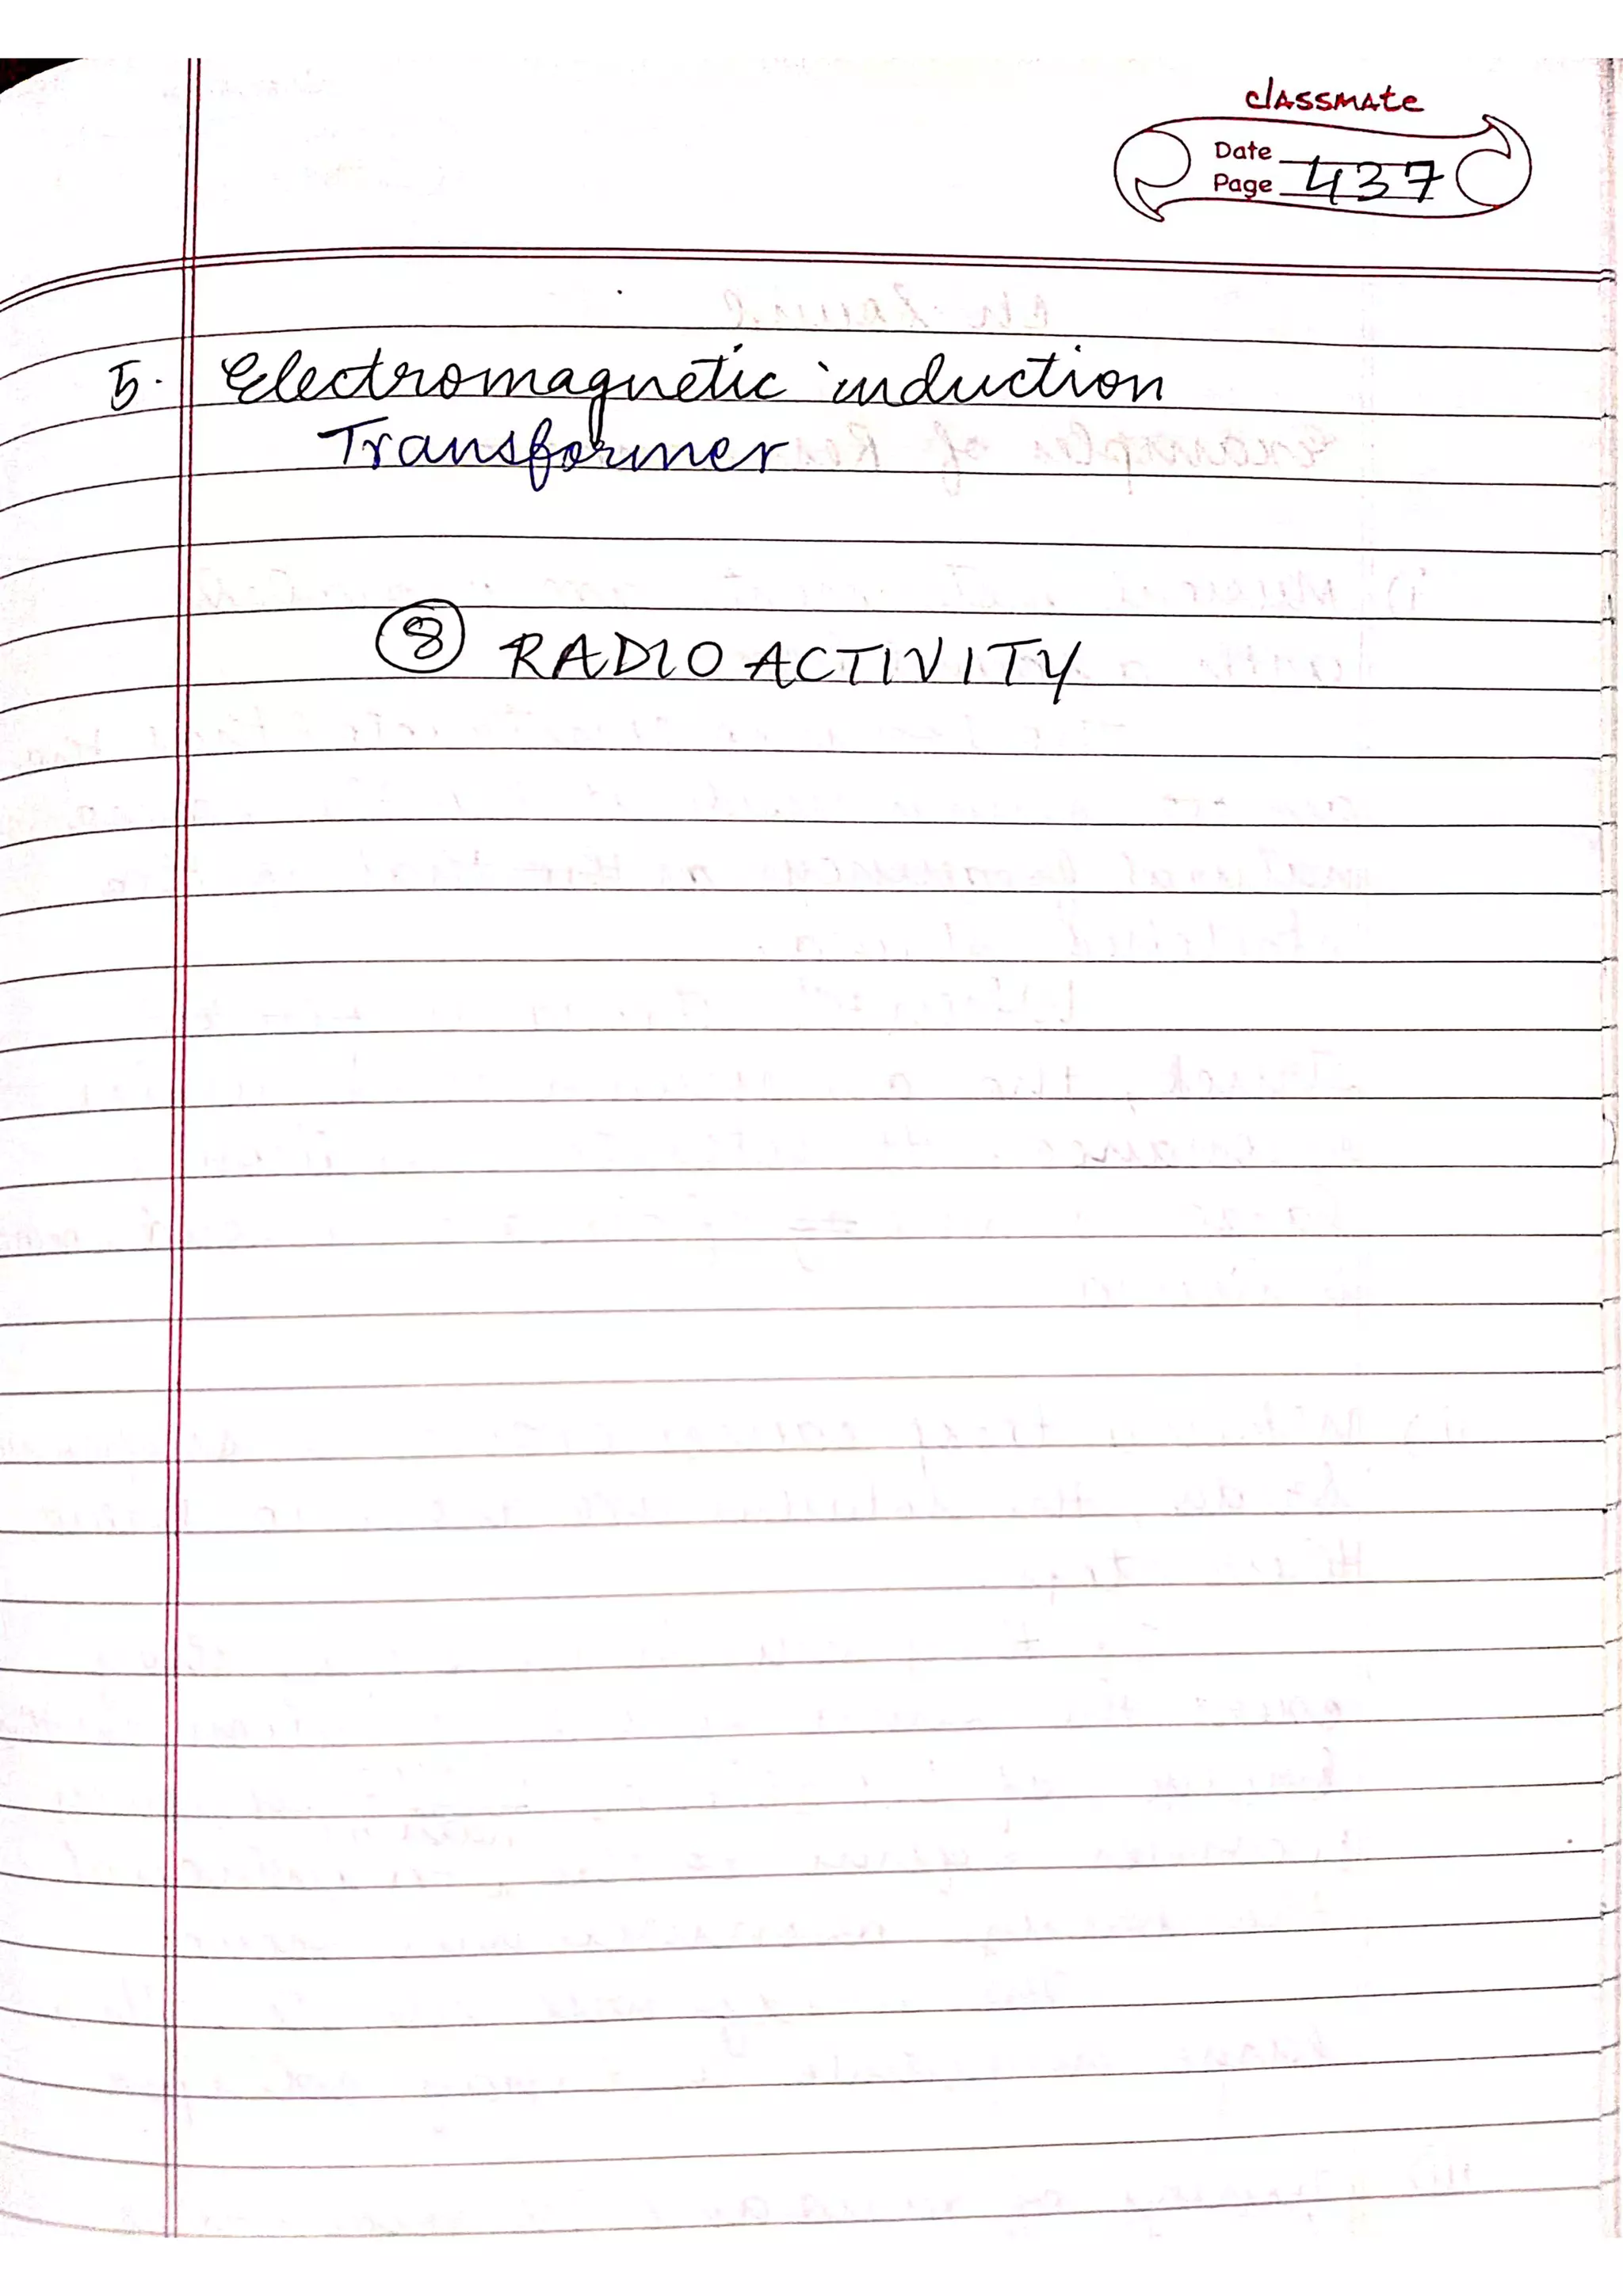 classmate
Date
Page 437
5. Electromagnetic induction
Transformer
8 RADIO ACTIVITY